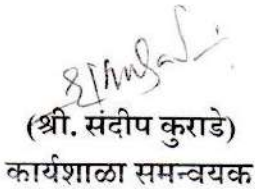 (श्री. संदीप कुराडे)
कार्यशाळा समन्वयक